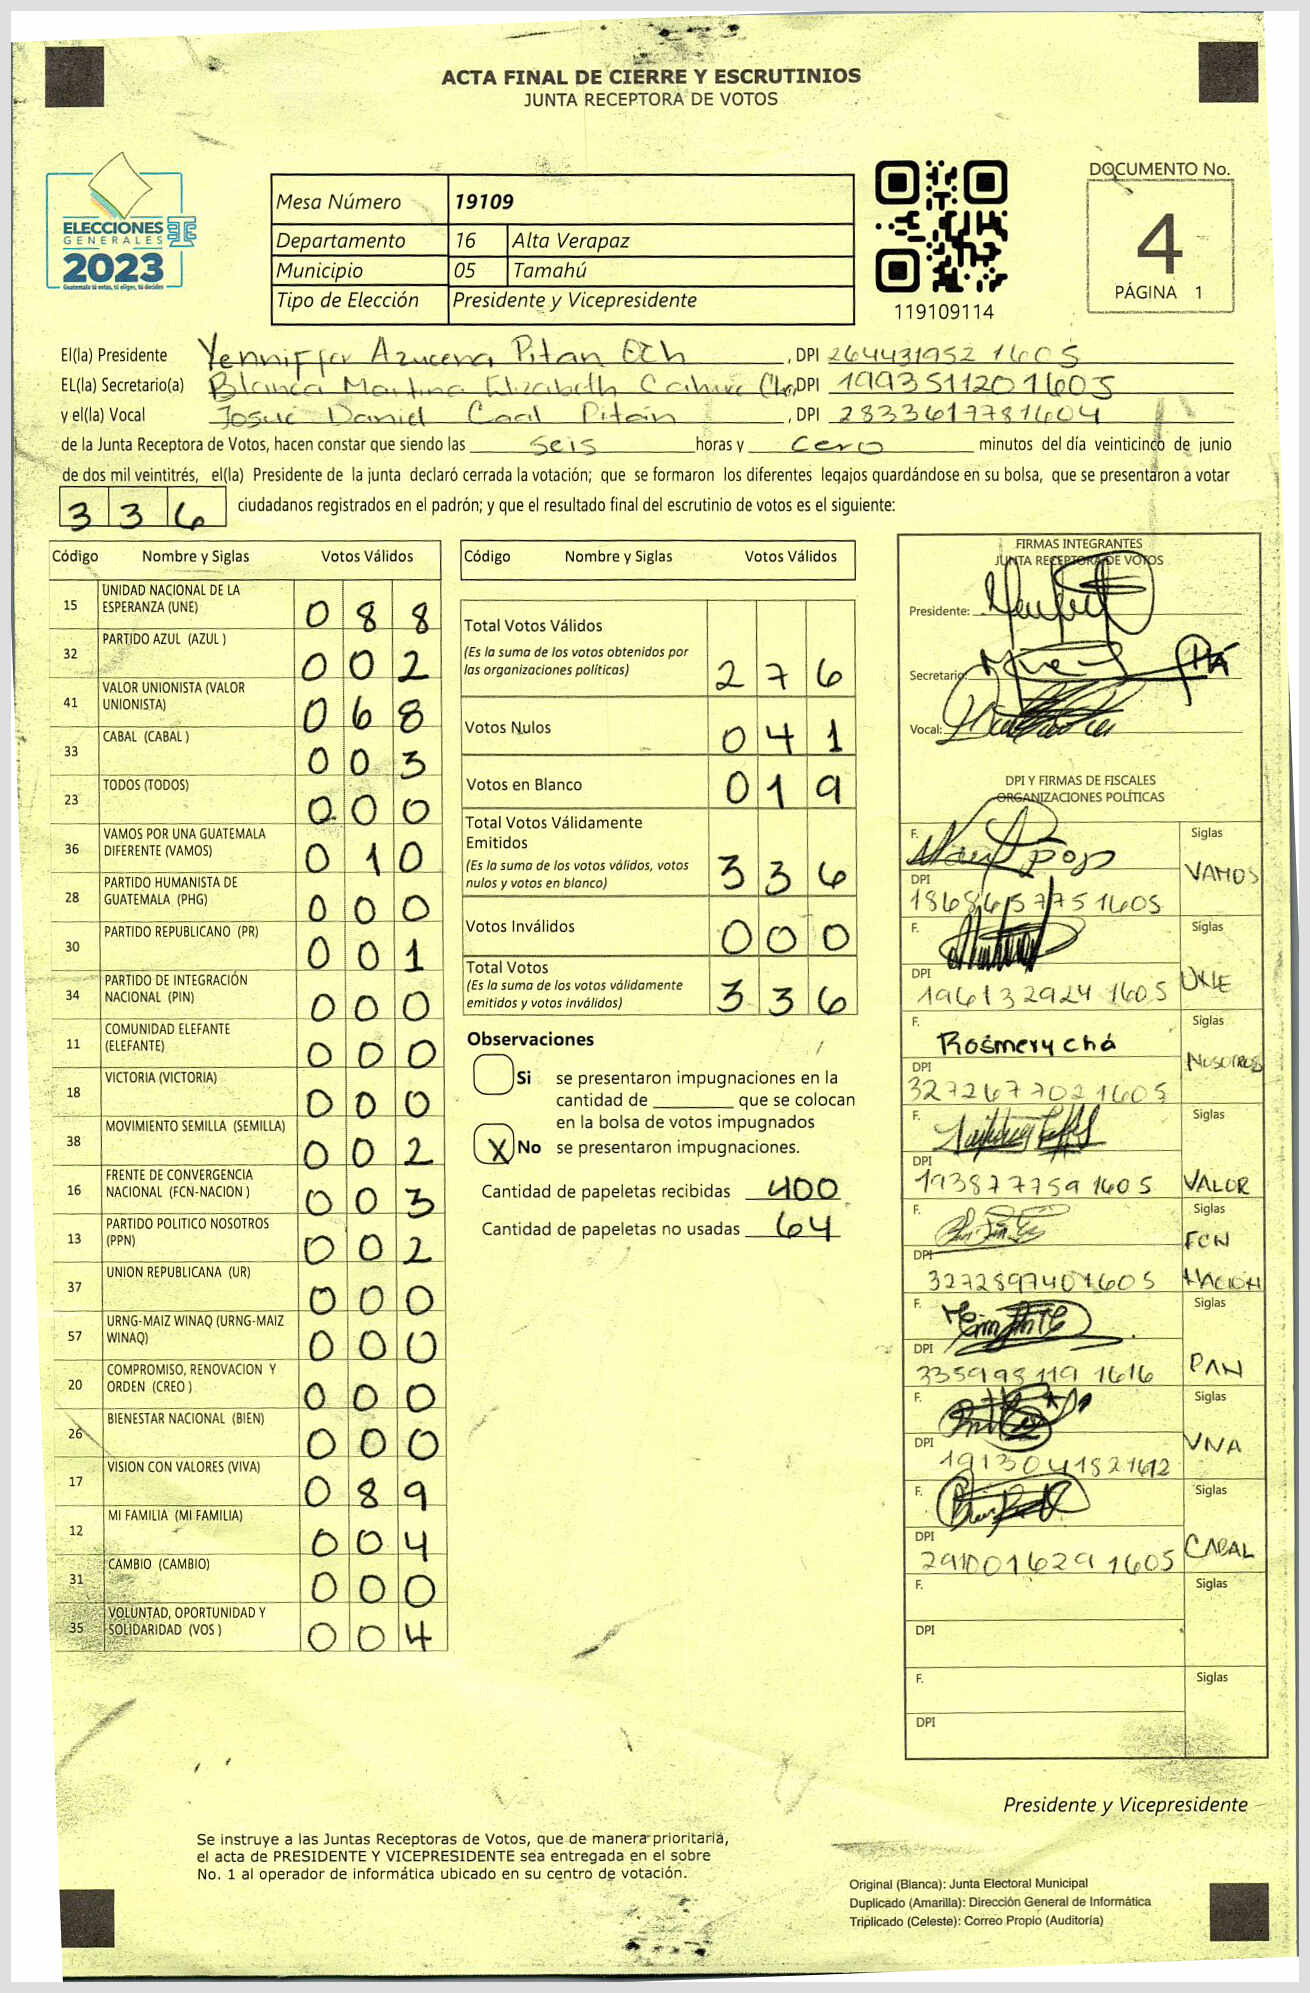 ACTA FINAL DE CIERRE Y ESCRUTINIOS
JUNTA RECEPTORA DE VOTOS
ELECCIONES
GENERALES
2023
Guatemala tú votas, tú eliges, tú decides
Mesa Número 19109
Departamento 16 Alta Verapaz
Municipio 05 Tamahú
Tipo de Elección Presidente y Vicepresidente
119109114
DOCUMENTO No.
4
PÁGINA 1
El(la) Presidente Yenniffer Azucena Pitan , DPI 264431952 1605
EL(la) Secretario(a) Blanca Martina Elizabeth , DPI 1993511201605
y el(la) Vocal Josué Daniel Caal Pitán , DPI 2833617781604
de la Junta Receptora de Votos, hacen constar que siendo las seis horas y cero minutos del día veinticinco de junio
de dos mil veintitrés, el(la) Presidente de la junta declaró cerrada la votación; que se formaron los diferentes legajos guardándose en su bolsa, que se presentaron a votar
336 ciudadanos registrados en el padrón; y que el resultado final del escrutinio de votos es el siguiente:
Código Nombre y Siglas Votos Válidos
15 UNIDAD NACIONAL DE LA ESPERANZA (UNE) 088
32 PARTIDO AZUL (AZUL ) 002
41 VALOR UNIONISTA (VALOR UNIONISTA) 068
33 CABAL (CABAL ) 003
23 TODOS (TODOS) 000
36 VAMOS POR UNA GUATEMALA DIFERENTE (VAMOS) 010
28 PARTIDO HUMANISTA DE GUATEMALA (PHG) 000
30 PARTIDO REPUBLICANO (PR) 001
34 PARTIDO DE INTEGRACIÓN NACIONAL (PIN) 000
11 COMUNIDAD ELEFANTE (ELEFANTE) 000
18 VICTORIA (VICTORIA) 000
38 MOVIMIENTO SEMILLA (SEMILLA) 002
16 FRENTE DE CONVERGENCIA NACIONAL (FCN-NACION ) 003
13 PARTIDO POLITICO NOSOTROS (PPN) 002
37 UNION REPUBLICANA (UR) 000
57 URNG-MAIZ WINAQ (URNG-MAIZ WINAQ) 000
20 COMPROMISO, RENOVACION Y ORDEN (CREO ) 000
26 BIENESTAR NACIONAL (BIEN) 000
17 VISION CON VALORES (VIVA) 089
12 MI FAMILIA (MI FAMILIA) 004
31 CAMBIO (CAMBIO) 000
35 VOLUNTAD, OPORTUNIDAD Y SOLIDARIDAD (VOS ) 004
Código Nombre y Siglas Votos Válidos
Total Votos Válidos 276
(Es la suma de los votos obtenidos por
las organizaciones políticas)
Votos Nulos 041
Votos en Blanco 019
Total Votos Válidamente
Emitidos 336
(Es la suma de los votos válidos, votos
nulos y votos en blanco)
Votos Inválidos 000
Total Votos 336
(Es la suma de los votos válidamente
emitidos y votos inválidos)
Observaciones
Si se presentaron impugnaciones en la
cantidad de ________ que se colocan
en la bolsa de votos impugnados
X No se presentaron impugnaciones.
Cantidad de papeletas recibidas 400
Cantidad de papeletas no usadas 64
FIRMAS INTEGRANTES
JUNTA RECEPTORA DE VOTOS
Presidente:
Secretario:
Vocal:
DPI Y FIRMAS DE FISCALES
ORGANIZACIONES POLÍTICAS
F. Siglas
VAMOS
DPI
1868615775 1605
F. Siglas
UNE
DPI
196132924 1605
F. Siglas
Rosmery chá
NOSOTROS
DPI
327267702 1605
F. Siglas
DPI
193877759 1605 VALOR
F. Siglas
FCN
NACIÓN
DPI
3272897401605
F. Siglas
DPI
335998119 1616 PAN
F. Siglas
DPI
1913041821612
F. Siglas
DPI
291001629 1605 CABAL
F. Siglas
DPI
F. Siglas
DPI
Presidente y Vicepresidente
Se instruye a las Juntas Receptoras de Votos, que de manera prioritaria,
el acta de PRESIDENTE Y VICEPRESIDENTE sea entregada en el sobre
No. 1 al operador de informática ubicado en su centro de votación.
Original (Blanca): Junta Electoral Municipal
Duplicado (Amarilla): Dirección General de Informática
Triplicado (Celeste): Correo Propio (Auditoría)